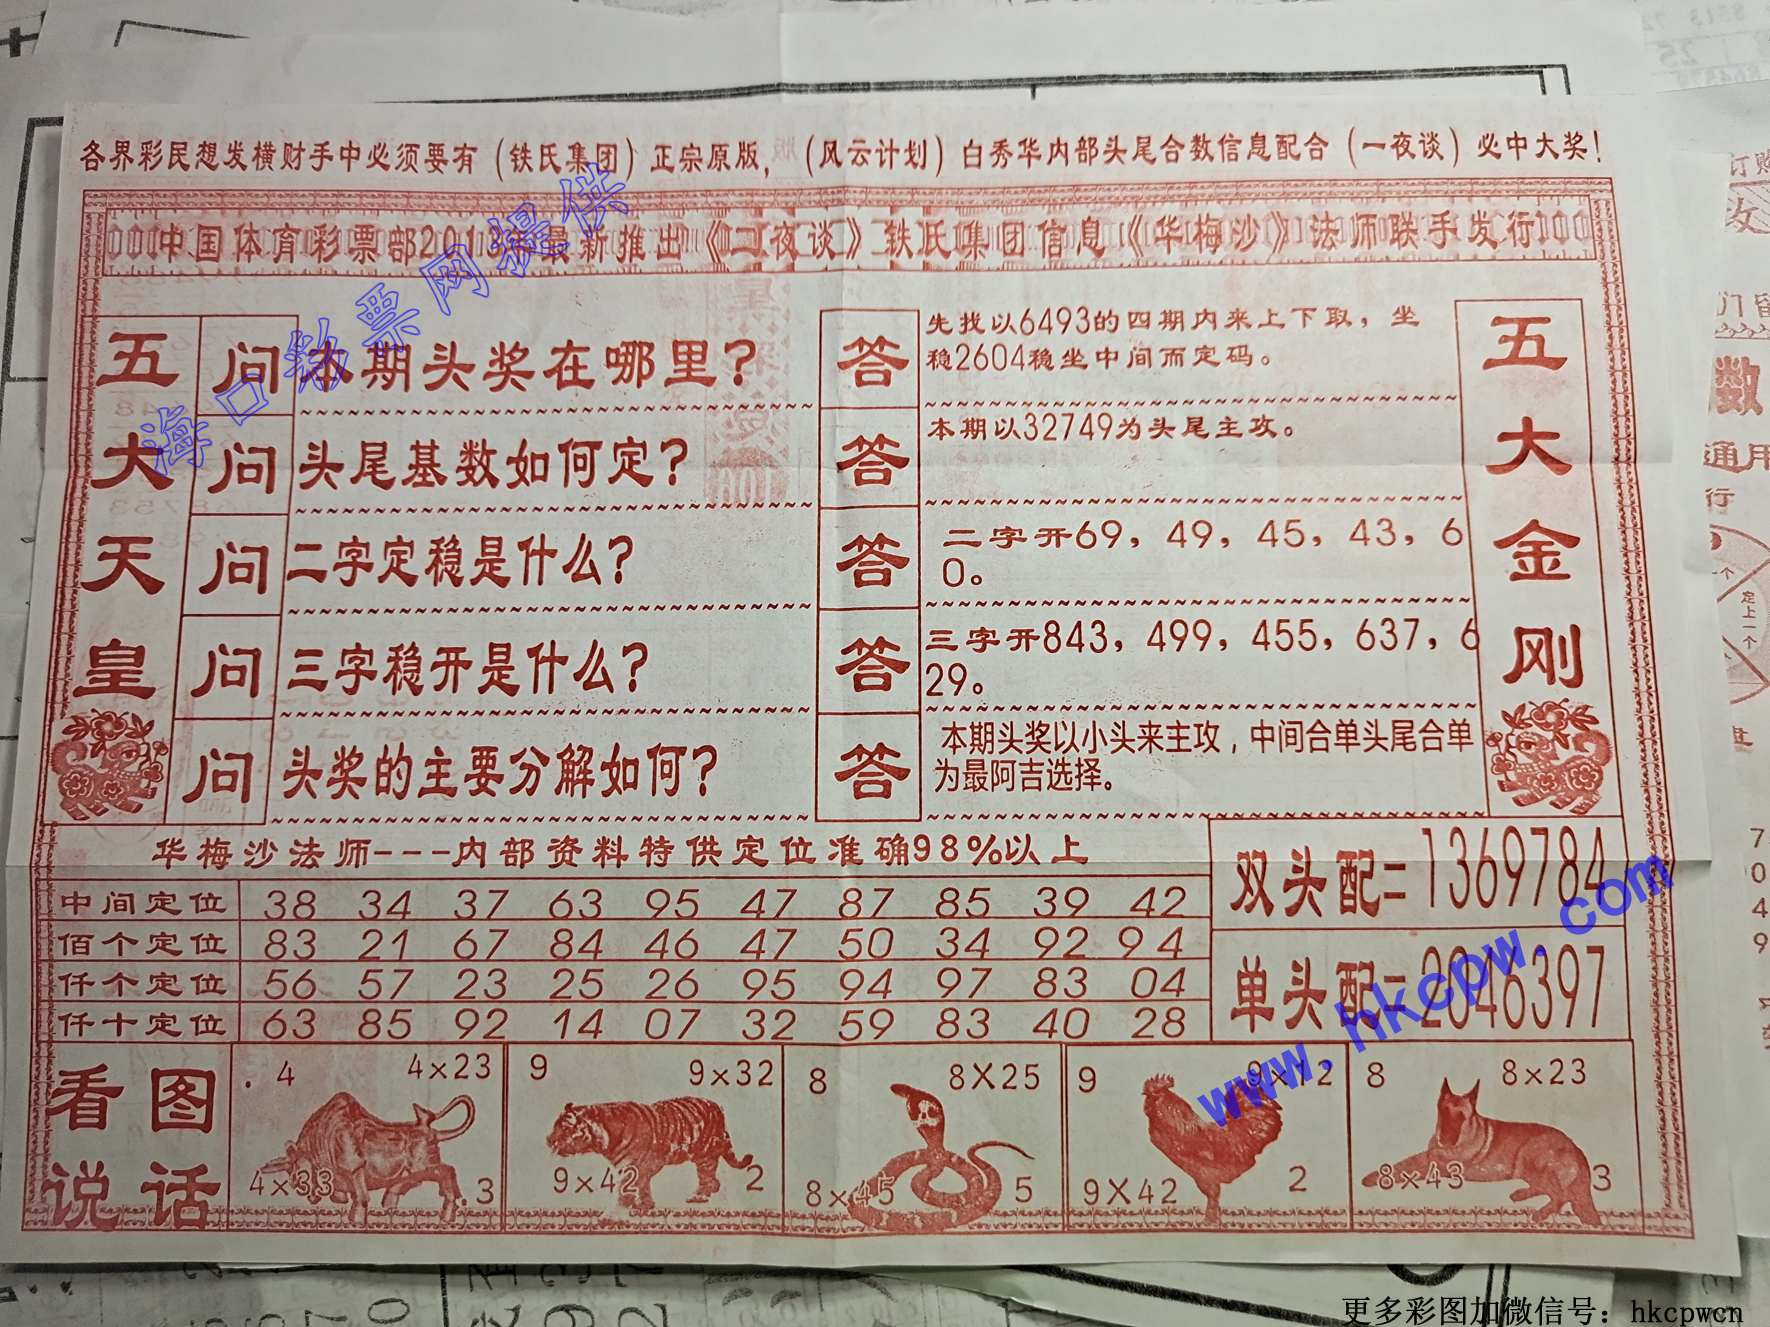 各界彩民想发横财手中必须要有（铁氏集团）正宗原版，（风云计划）白秀华内部头尾合数信息配合（一夜谈）必中大奖！
中国体育彩票部2013年最新推出《二夜谈》铁氏集团信息《华梅沙》法师联手发行
五大天皇
问 本期头奖在哪里？
答 先找以6493的四期内来上下取，坐
稳2604稳坐中间而定码。
问 头尾基数如何定？
答 本期以32749为头尾主攻。
问 二字定稳是什么？
答 二字开69，49，45，43，6
0。
问 三字稳开是什么？
答 三字开843，499，455，637，6
29。
问 头奖的主要分解如何？
答 本期头奖以小头来主攻，中间合单头尾合单
为最阿吉选择。
五大金刚
华梅沙法师---内部资料特供定位准确98%以上
中间定位 38 34 37 63 95 47 87 85 39 42
佰个定位 83 21 67 84 46 47 50 34 92 94
仟个定位 56 57 23 25 26 95 94 97 83 04
仟十定位 63 85 92 14 07 32 59 83 40 28
双头配=1369784
单头配=2046397
看图
说话
.4 4×23
4×33 .3
9 9×32
9×42 2
8 8X25
8×45 5
9 9×12
9X42 2
8 8×23
8×43 3
海口彩票网提供
www.hkcpw.com
更多彩图加微信号：hkcpwcn